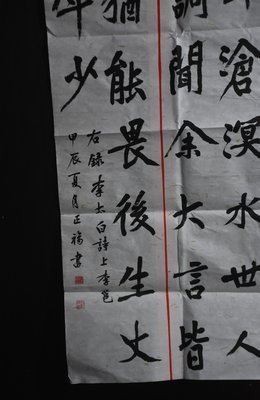 滄溟水世人
調聞余大言皆
猶能畏後生丈
年少
右録李太白詩上李邕
甲辰夏月正福書